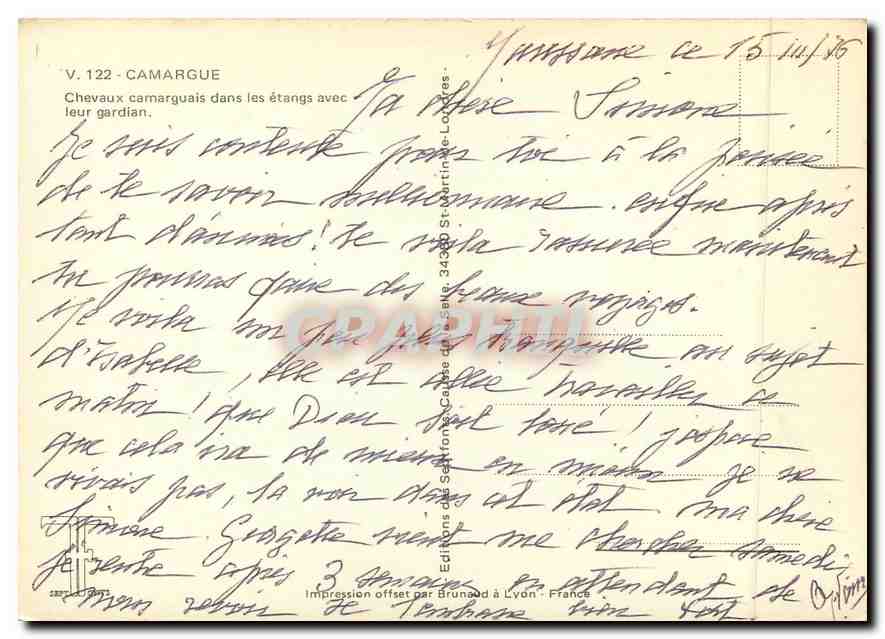 ce 15 III/76
V. 122 - CAMARGUE
Chevaux camarguais dans les étangs avec
leur gardian.
Ma chère Simone
Je suis contente pour toi à la pensée
de te savoir millionnaire. après
tant d'années! te voila rassurée maintenant
tu pourras faire des beaux voyages.
Me voila un peu plus tranquille au sujet
d'Isabelle, elle est allée travailler ce
matin! que Dieu soit loué! j'espère
que cela ira de mieux en mieux je ne
vivais pas, la voir dans cet état. ma chère
Simone. Georgette vient me chercher samedi
je rentre après 3 semaines en attendant de
nous revoir je t'embrasse bien fort
Editions des Sept Fonts, Causse de la Selle, 34380 St-Martin-de-Londres -
CPAPHIL
SEPT FONTS
Impression offset par Brunaud à Lyon - France